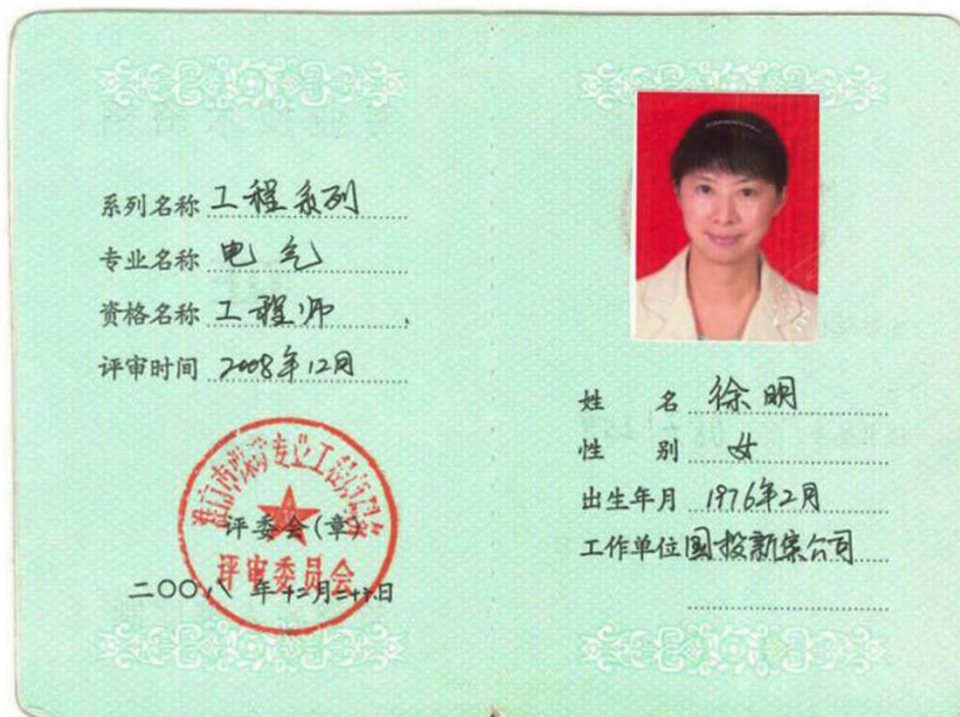 系列名称 工程系列
专业名称 电气
资格名称 工程师
评审时间 2008年12月
评委会(章)
评审委员会
二〇〇八年十二月二十六日
姓 名 徐明
性 别 女
出生年月 1976年2月
工作单位 国投新集公司